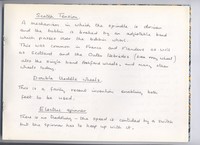 Scotch Tension.
A mechanism in which the spindle is driven
and the bobbin is braked by an adjustable band
which passes over the bobbin whorl.
This was common in France and Flanders as well
as Scotland and the Outer Hebrides (see very what)
also the single band Ashford wheels, and many other
wheels today.
Double treddle wheels.
This is a fairly recent invention enabling both
feet to be used.
Electric spinners
There is no treddling - the speed is controlled by a switch
but the spinner has to keep up with it.